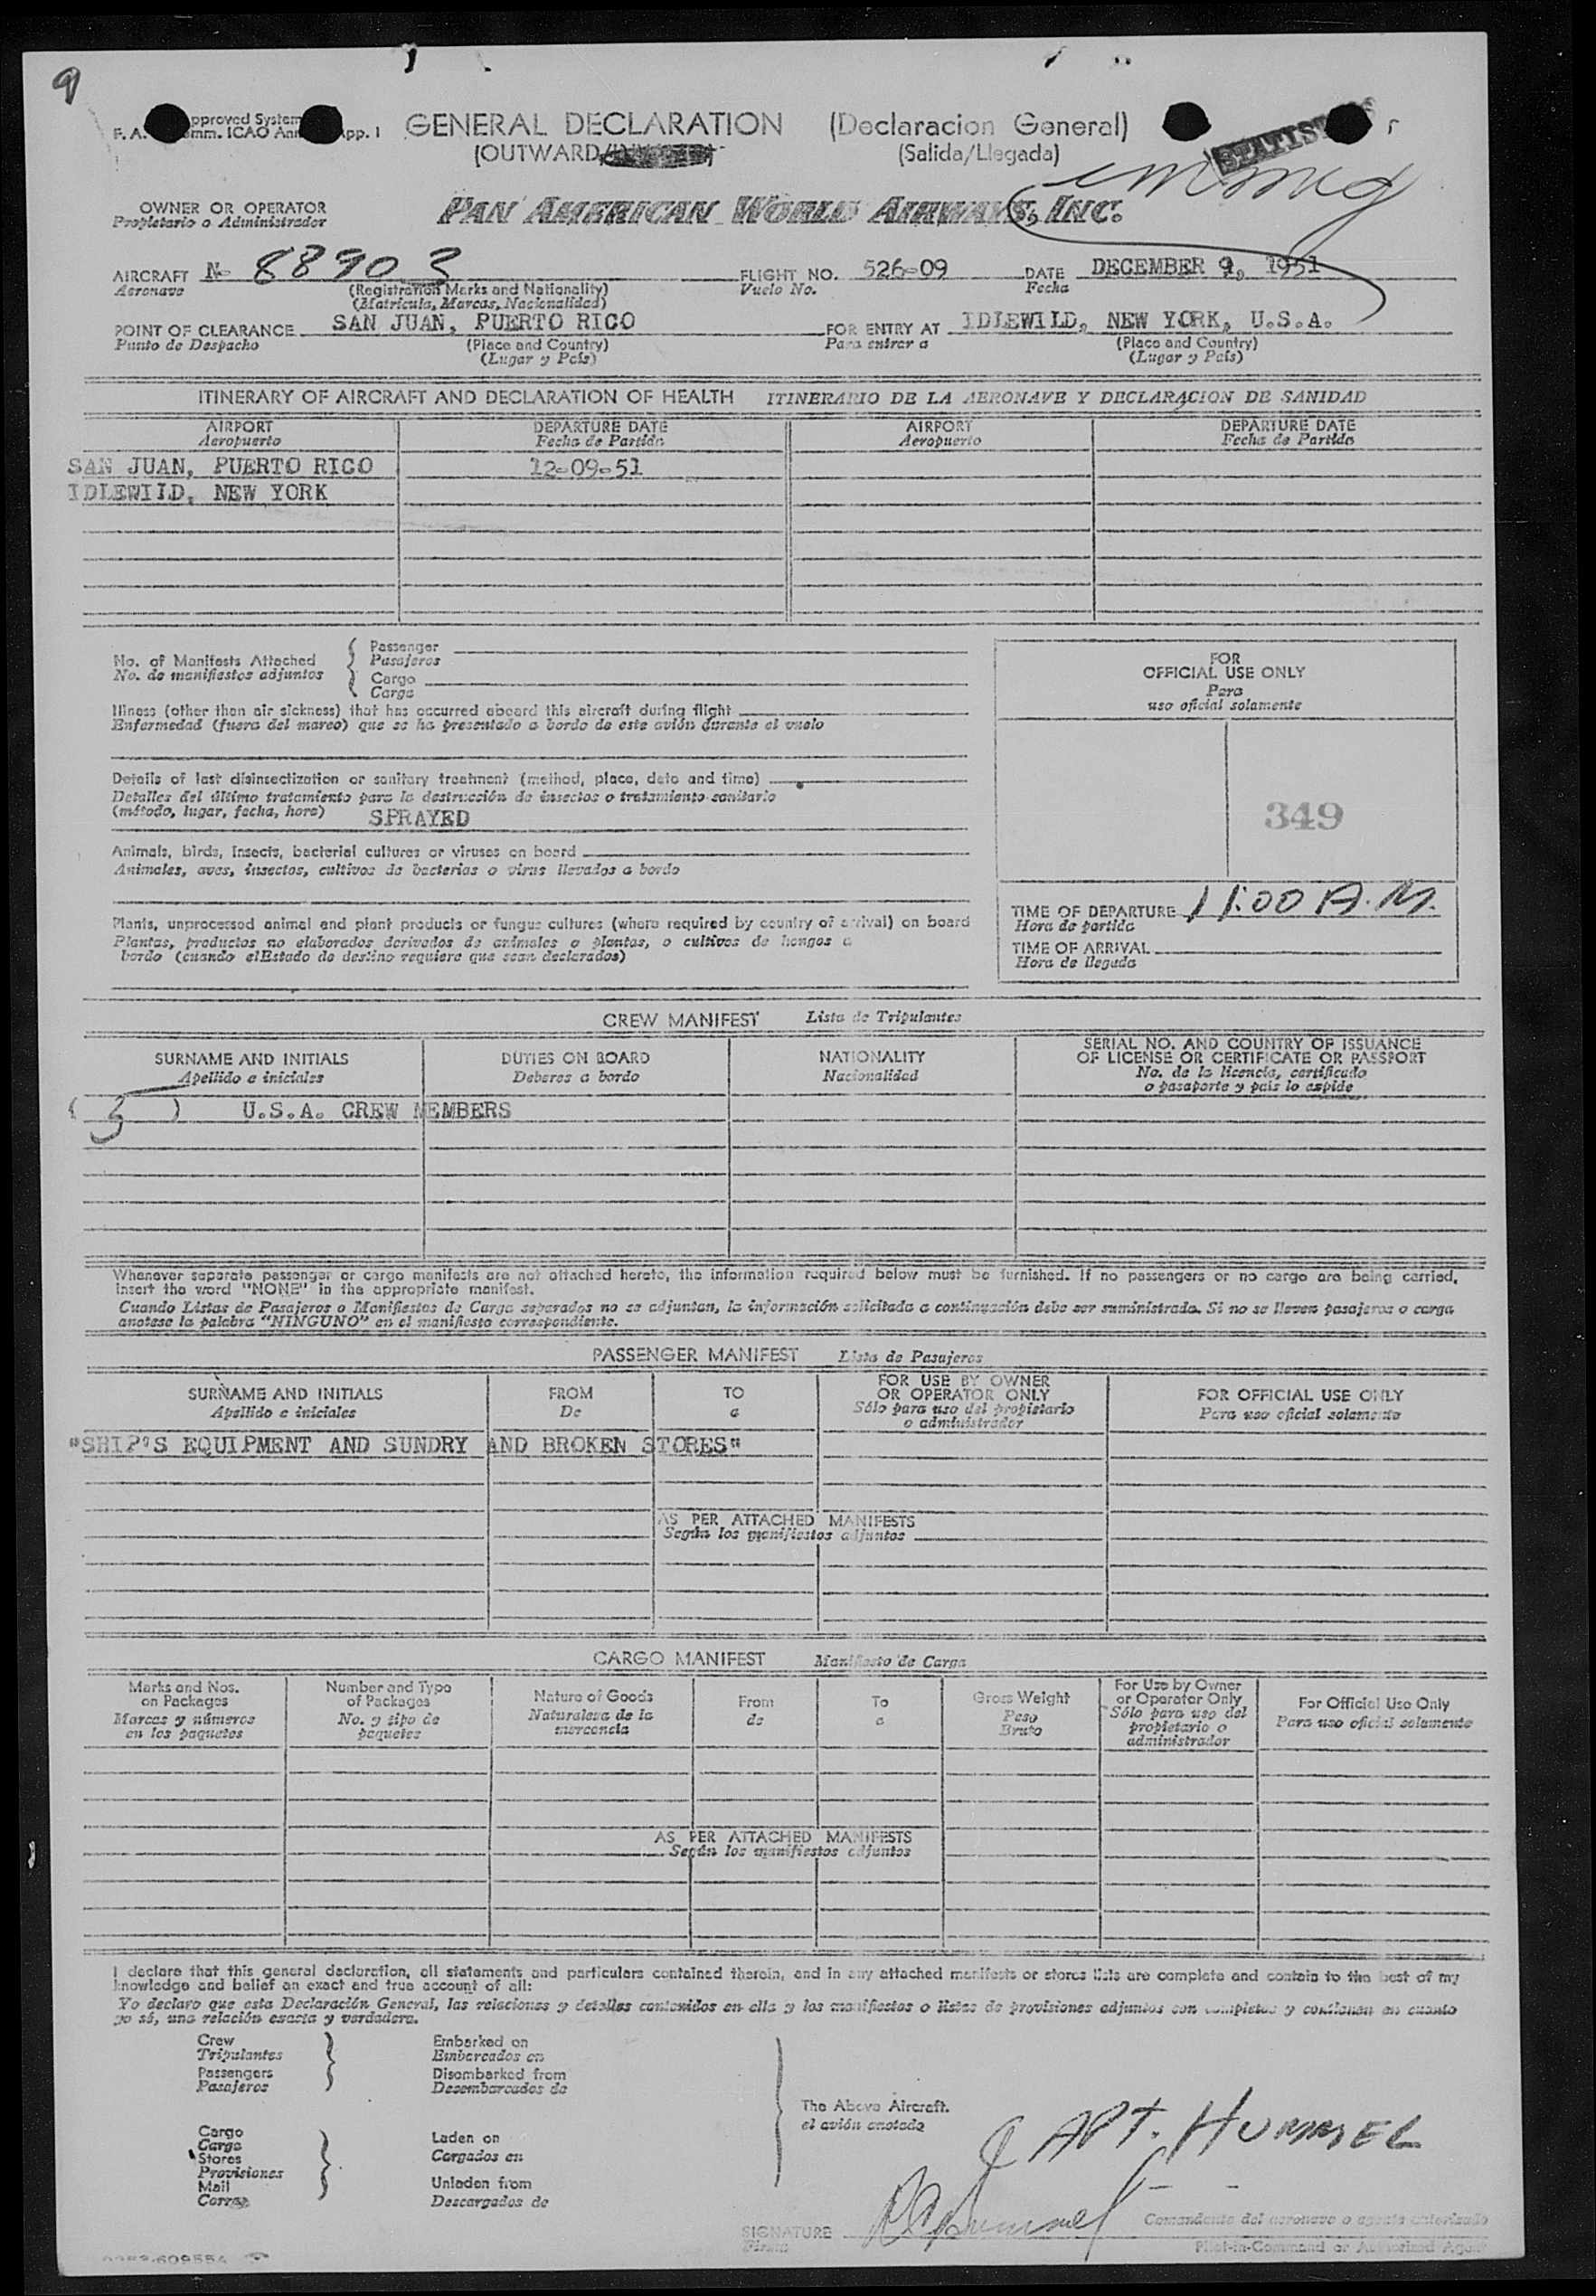 9
F. A. pproved System
mm. ICAO Ann pp. I
GENERAL DECLARATION (Declaracion General)
(OUTWARD/
(Salida/Llegada)
STATIST
immig
OWNER OR OPERATOR
Propietario o Administrador
PAN AMERICAN WORLD AIRWAYS, INC.
AIRCRAFT N- 88903 FLIGHT NO. 526-09 DATE DECEMBER 9, 1951
Aeronave (Registration Marks and Nationality) Vuelo No. Fecha
(Matricula, Marcas, Nacionalidad)
POINT OF CLEARANCE SAN JUAN, PUERTO RICO FOR ENTRY AT IDLEWILD, NEW YORK, U.S.A.
Punto de Despacho (Place and Country) Para entrar a (Place and Country)
(Lugar y País) (Lugar y País)
ITINERARY OF AIRCRAFT AND DECLARATION OF HEALTH ITINERARIO DE LA AERONAVE Y DECLARACION DE SANIDAD
AIRPORT DEPARTURE DATE AIRPORT DEPARTURE DATE
Aeropuerto Fecha de Partida Aeropuerto Fecha de Partida
SAN JUAN, PUERTO RICO 12-09-51
IDLEWILD, NEW YORK
No. of Manifests Attached
No. de manifiestos adjuntos
Passenger
Pasajeros
Cargo
Carga
Illness (other than air sickness) that has occurred aboard this aircraft during flight
Enfermedad (fuera del mareo) que se ha presentado a bordo de este avión durante el vuelo
Details of last disinsectization or sanitary treatment (method, place, date and time)
Detalles del último tratamiento para la destrucción de insectos o tratamiento sanitario
(método, lugar, fecha, hora) SPRAYED
Animals, birds, insects, bacterial cultures or viruses on board
Animales, aves, insectos, cultivos de bacterias o virus llevados a bordo
Plants, unprocessed animal and plant products or fungus cultures (where required by country of arrival) on board
Plantas, productos no elaborados derivados de animales o plantas, o cultivos de hongos a
bordo (cuando el Estado de destino requiere que sean declarados)
FOR
OFFICIAL USE ONLY
Para
uso oficial solamente
349
TIME OF DEPARTURE 11:00 A.M.
Hora de partida
TIME OF ARRIVAL
Hora de llegada
CREW MANIFEST Lista de Tripulantes
SURNAME AND INITIALS DUTIES ON BOARD NATIONALITY SERIAL NO. AND COUNTRY OF ISSUANCE
OF LICENSE OR CERTIFICATE OR PASSPORT
Apellido e iniciales Deberes a bordo Nacionalidad No. de la licencia, certificado
o pasaporte y país lo expide
( 5 ) U.S.A. CREW MEMBERS
Whenever separate passenger or cargo manifests are not attached hereto, the information required below must be furnished. If no passengers or no cargo are being carried,
insert the word "NONE" in the appropriate manifest.
Cuando Listas de Pasajeros o Manifiestos de Carga separados no se adjuntan, la información solicitada a continuación debe ser suministrada. Si no se lleven pasajeros o carga
anotese la palabra "NINGUNO" en el manifiesto correspondiente.
PASSENGER MANIFEST Lista de Pasajeros
SURNAME AND INITIALS FROM TO FOR USE BY OWNER
OR OPERATOR ONLY FOR OFFICIAL USE ONLY
Apellido e iniciales De a Sólo para uso del propietario
o administrador Para uso oficial solamente
"SHIP'S EQUIPMENT AND SUNDRY AND BROKEN STORES"
AS PER ATTACHED MANIFESTS
Según los manifiestos adjuntos
CARGO MANIFEST Manifiesto de Carga
Marks and Nos.
on Packages
Marcas y números
en los paquetes
Number and Type
of Packages
No. y tipo de
paquetes
Nature of Goods
Naturaleza de la
mercancia
From
de
To
a
Gross Weight
Peso
Bruto
For Use by Owner
or Operator Only
Sólo para uso del
propietario o
administrador
For Official Use Only
Para uso oficial solamente
AS PER ATTACHED MANIFESTS
Según los manifiestos adjuntos
I declare that this general declaration, all statements and particulars contained therein, and in any attached manifests or stores lists are complete and contain to the best of my
knowledge and belief an exact and true account of all:
Yo declaro que esta Declaración General, las relaciones y detalles contenidos en ella y los manifiestos o listas de provisiones adjuntos son completos y contienen en cuanto
yo sé, una relación exacta y verdadera.
Crew
Tripulantes
Passengers
Pasajeros
Embarked on
Embarcados en
Disembarked from
Desembarcados de
Cargo
Carga
Stores
Provisiones
Mail
Correo
Laden on
Cargados en
Unladen from
Descargados de
The Above Aircraft.
el avión anotado
CAPT. HUMMEL
SIGNATURE
Firma
Comandante del aeronave o agente autorizado
Pilot-in-Command or Authorized Agent